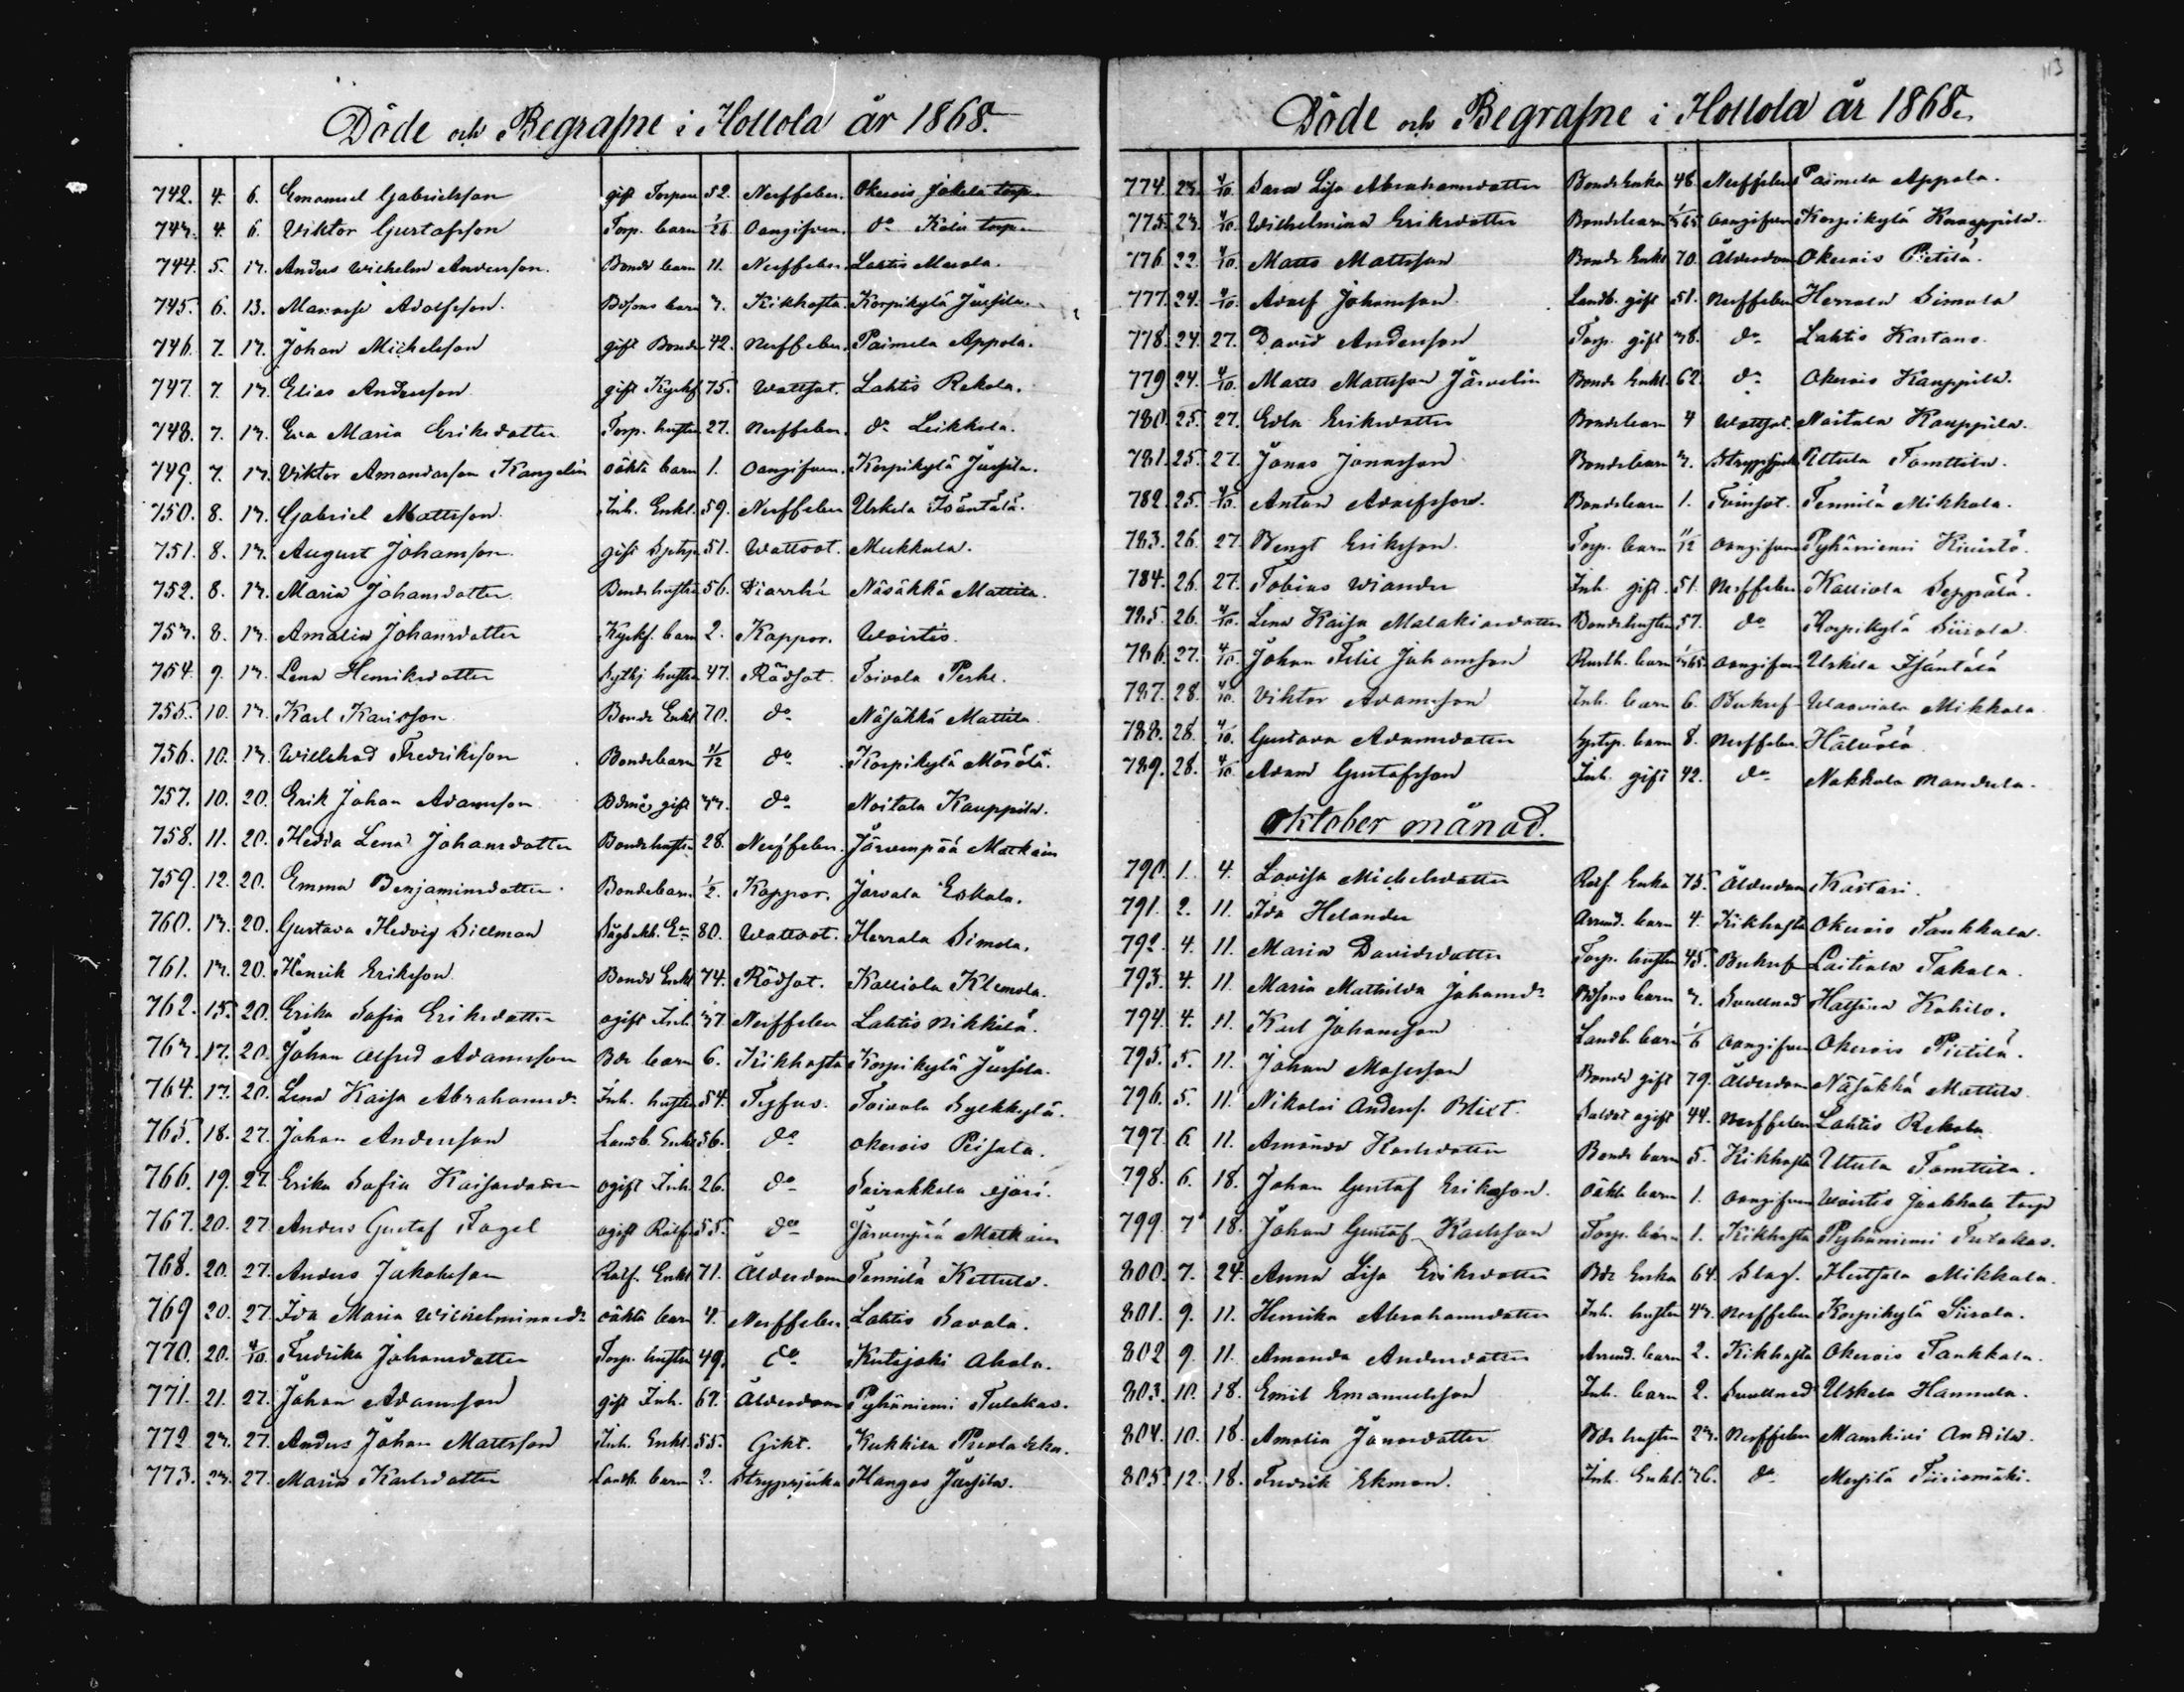 Döde och Begrafne i Hollola år 1868.
742. 4. 6. Emanuel Gabrielsson gift Torpare 52. Nerffeber. Okerois Jokela torp
743. 4. 6. Viktor Gustafsson Torp. barn 1/26 Oangifven. do Koiu torp
744. 5. 13. Anders Wilhelm Andersson. Bonde barn 11. Nerffeber Lahtis
745. 6. 13. Adolfsson. barn 3. Kikhosta. Korpikylä Jussila.
746. 7. 13. Johan Michelsson gift Bonde 42. Nerffeber. Paimela Appola.
747. 7. 13. Elias Andersson gift 75. Wattsot. Lahtis Rekola.
748. 7. 13. Eva Maria Eriksdotter Torp. hustru 27. Nerffeber. do Leikkola.
749. 7. 13. Viktor Amandasson Kangelin oäkta barn 1. Oangifven. Korpikylä Jussila.
750. 8. 13. Gabriel Mattsson Inh. Enkl. 59. Nerffeber Uskela Isäntälä.
751. 8. 13. August Johansson gift 51. Wattsot. Mukkula.
752. 8. 13. Maria Johansdotter Bonde hustru 56. Diarrhé Näsäkkä Mattila.
753. 8. 13. Amalia Johansdotter barn 2. Koppor. Woistis.
754. 9. 13. Lena Henriksdotter hustru 47. Rödsot. Toivola Perhe.
755. 10. 13. Karl Karlsson Bonde Enkl. 70. do Näsäkkä Mattila
756. 10. 13. Willehad Fredriksson Bondebarn 11/12 do Korpikylä Mäsälä.
757. 10. 20. Erik Johan Adamsson gift 33. do Noitala Kauppila.
758. 11. 20. Hedda Lena Johansdotter Bondehustru 28. Nerffeber. Järvenpää Matkain
759. 12. 20. Emma Benjaminsdotter Bondebarn 1/2. Koppor. Jarvala Eskola.
760. 13. 20. Gustava Hedvig Sillman 80. Wattsot. Herrala Simola.
761. 13. 20. Henrik Eriksson Bonde Enkl 74. Rödsot. Kalliola Klemola.
762. 15. 20. Erika Sofia Eriksdotter ogift Inh. 37. Nerffeber Lahtis Nikkilä.
763. 17. 20. Johan Alfred Adamsson Bde barn 6. Kikhosta Korpikylä Jussila.
764. 17. 20. Lena Kaisa Abrahamsd. Inh. hustru 54. Tyfus. Toivola Syckkylä.
765. 18. 27. Johan Andersson Landb. Enkl 56. do Okerois Peisala.
766. 19. 27. Erika Sofia Kaisasdotter ogift Inh. 26. do Sairakkala
767. 20. 27. Anders Gustaf Fogel ogift 55. do Järvenpää Matkain
768. 20. 27. Anders Jakobsson Enkl 71. Ålderdom Tennilä Kettula.
769 20. 27. Ida Maria Wilhelminasd. oäkta barn 4. Nerffeber Lahtis Savola.
770. 20. 4/10. Fredrika Johansdotter Torp. hustru 49. do Kutajoki Ahola.
771. 21. 27. Johan Adamsson gift Inh. 67. Ålderdom Pyhäniemi Tulokas.
772 23. 27. Anders Johan Mattsson Inh. Enkl. 55. Gikt. Kukkila
773. 23. 27. Maria Karlsdotter Landb. barn 2. Strypsjuka Hangas Jussila.
113
Döde och Begrafne i Hollola år 1868.
774. 23. 4/10. Sara Lisa Abrahamsdotter Bonde Enka 48. Nerffeber Paimela Appola.
775. 23. 4/10. Wilhelmina Eriksdotter Bondebarn Oangifven Korpikylä Knaappila.
776. 22. 4/10. Matts Mattsson Bonde Enkl 70. Ålderdom Okerois Pietilä.
777. 24. 4/10. Adolf Johansson Landb. gift 51. Nerffeber Herrala Simola
778. 24. 27. David Andersson Torp. gift 38. do Lahtis Kartano
779 24. 4/10. Matts Mattsson Järvelin Bonde Enkl. 62. do Okerois Kauppila.
780. 25. 27. Edla Eriksdotter Bondebarn 4 Wattsot. Noitala Kauppila.
781. 25. 27. Jonas Jonasson Bondebarn 3. Strypsjuka Uttula Tomttila.
782. 25. 4/10. Anton Adolfsson. Bondebarn 1. Tvinsot. Tennilä Mikkola.
783. 26. 27. Bengt Eriksson. Torp. barn 11/12 Oangifven Pyhäniemi Kivistö.
784. 26. 27. Tobias Wiander Inh. gift. 51. Nerffeber Kalliola Seppälä.
785. 26. 4/10. Lena Kaisa Malakiasdotter Bondehustru 57. do Korpikylä Siirola.
786. 27. 4/10. Johan Felic Johansson Rusth. barn Oangifven Uskila Isäntälä
787. 28. 4/10. Viktor Adamsson Inh. barn 6. Bukref Waaviala Mikkola
788. 28. 4/10. Gustava Adamsdotter barn 8. Nerffeber Hälvälä
789. 28. 4/10. Adam Gustafsson Inh. gift 42. do Nokkola Mandula.
Oktober månad.
790. 1. 4. Lovisa Michelsdotter Enka 75. Ålderdom Kastari.
791. 2. 11. Ida Helander Arrend. barn 4. Kikhosta Okerois Tankkala.
792. 4. 11. Maria Davidsdotter Torp. hustru 45. Bukref Laitiala Takala.
793. 4. 11. Maria Mathilda Johansd. barn 3. Svullnad Hatsina Kahilo.
794. 4. 11. Karl Johansson Landb. barn 1/6 Oangifven Okerois Pietilä.
795. 5. 11. Johan Mosesson Bonde gift 79. Ålderdom Näsäkkä Mattila
796. 5. 11. Nikolai Anders. Blixt. Soldat ogift 44. Nerffeber Lahtis Rekola
797. 6 11. Amanda Karlsdotter Bonde barn 5. Kikhosta Uttula Tomttila.
798. 6. 18. Johan Gustaf Eriksson. Oäkta barn 1. Oangifven Woistis Jaakkola torp
799. 7 18. Johan Gustaf Karlsson Torp. barn 1. Kikhosta Pyhäniemi Tulokas.
800. 7. 24. Anna Lisa Eriksdotter Bde Enka 64. Slag. Hertsala Mikkola.
801. 9. 11. Henrika Abrahamsdotter Inh. hustru 43. Nerffeber Korpikylä Siirola.
802 9. 11. Amanda Andersdotter Arrend. barn 2. Kikhosta Okerois Tankkala.
803. 10. 18. Emil Emanuelsson Inh. barn 2. Svullnad Uskela Hannula.
804. 10. 18. Amalia Jonasdotter Bde hustru 23. Nerffeber Manskivi Anttila.
805. 12. 18. Fredrik Ekman. Inh. Enkl. 36. do Messilä Tiirismäki.